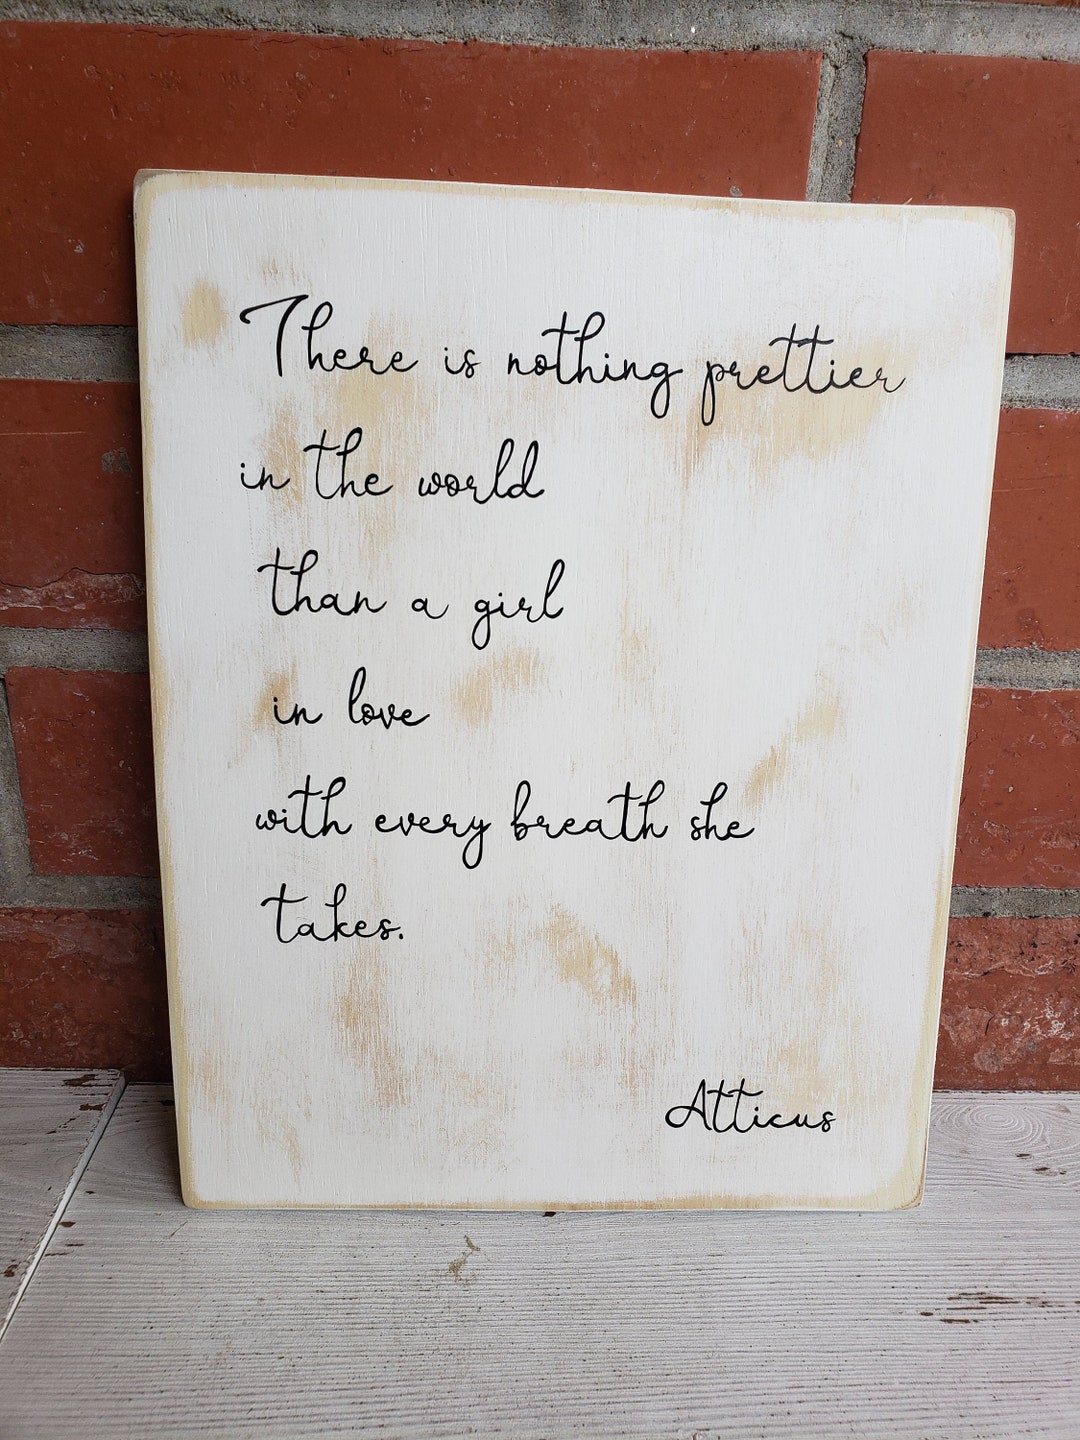 There is nothing prettier
in the world
than a girl
in love
with every breath she
takes.
Atticus